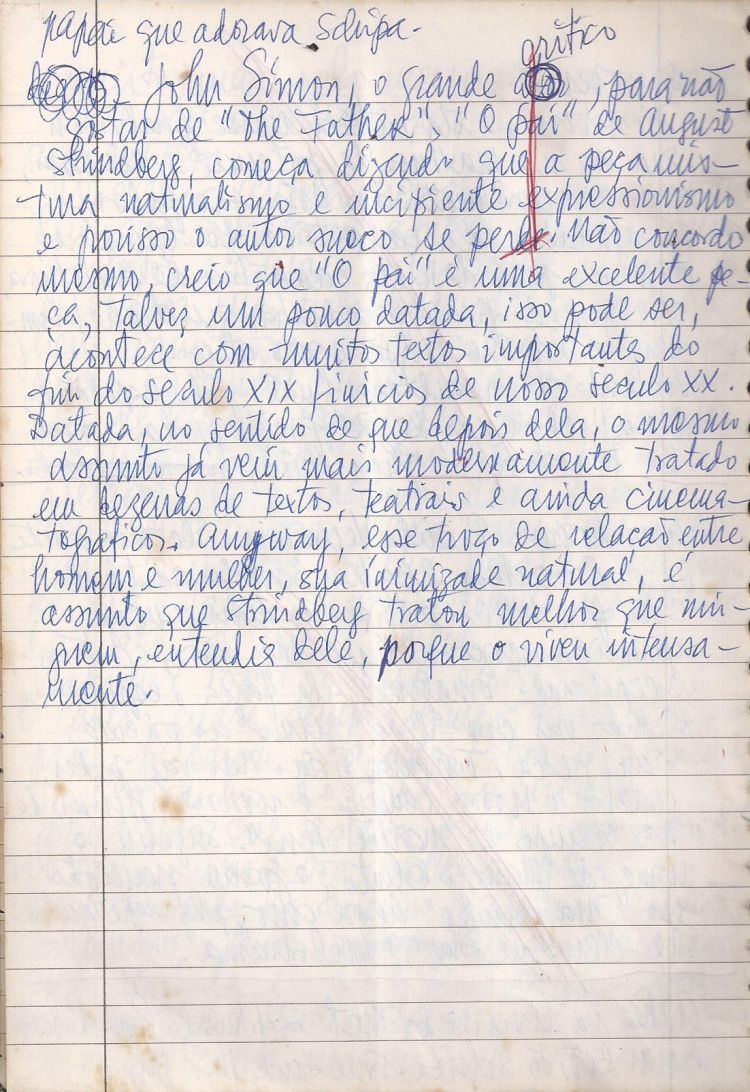 papai que adorava Schipa.
crítico
John Simon, o grande, para não
gostar de "The Father", "O pai" de August
Strindberg, começa dizendo que a peça mis-
tura naturalismo e incipiente expressionismo
e porisso o autor sueco se perde. Não concordo
mesmo, creio que "O pai" é uma excelente pe-
ça, talvez um pouco datada, isso pode ser,
acontece com muitos textos importantes do
fim do seculo XIX / inicios de nosso seculo XX.
Datada, no sentido de que depois dela, o mesmo
assunto já vem mais modernamente tratado
em dezenas de textos, teatrais e ainda cinema-
tograficos. Anyway, esse troço de relação entre
homem e mulher, sua inimizade natural, é
assunto que Strindberg tratou melhor que nin-
guem, entendia dele, porque o viveu intensa-
mente.